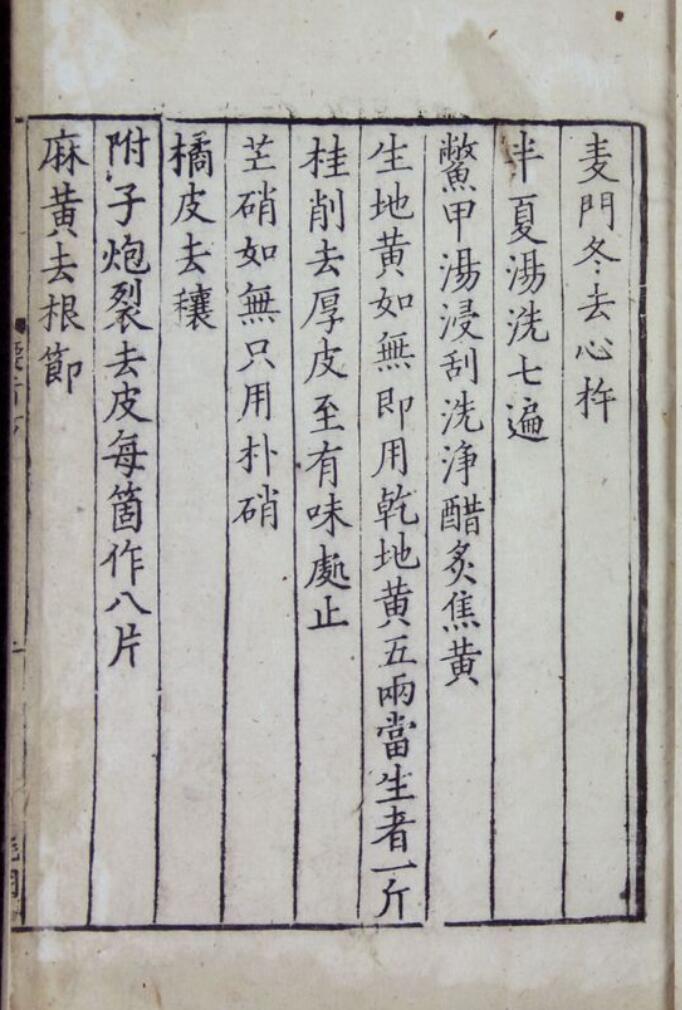 麦門冬去心杵
半夏湯洗七遍
鱉甲湯浸刮洗浄醋炙焦黄
生地黄如無即用乾地黄五兩當生者一斤
桂削去厚皮至有味處止
芒硝如無只用朴硝
橘皮去穰
附子炮裂去皮每箇作八片
麻黄去根節